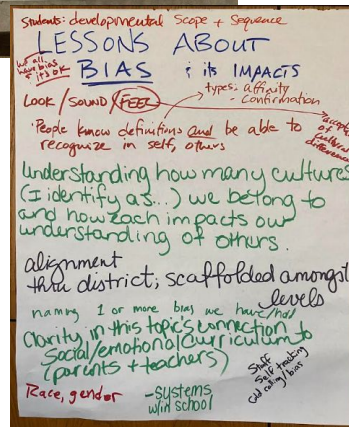 Students: developmental Scope + Sequence
LESSONS ABOUT
we all
have bias
& it's OK
BIAS & its IMPACTS
types: affinity
- confirmation
LOOK / SOUND / FEEL
accept
of cultural
differences
"People know definitions and be able to
recognize in self, others
Understanding how many cultures
(I identify as...) we belong to
and how each impacts our
understanding of others.
alignment
thru district; scaffolded amongst
levels
naming 1 or more bias we have/had
Clarity in this topic's connection to
Social/emotional curriculum
(parents + teachers)
Staff
Self teaching
cold calling/bias
Race, gender
-systems
w/in school